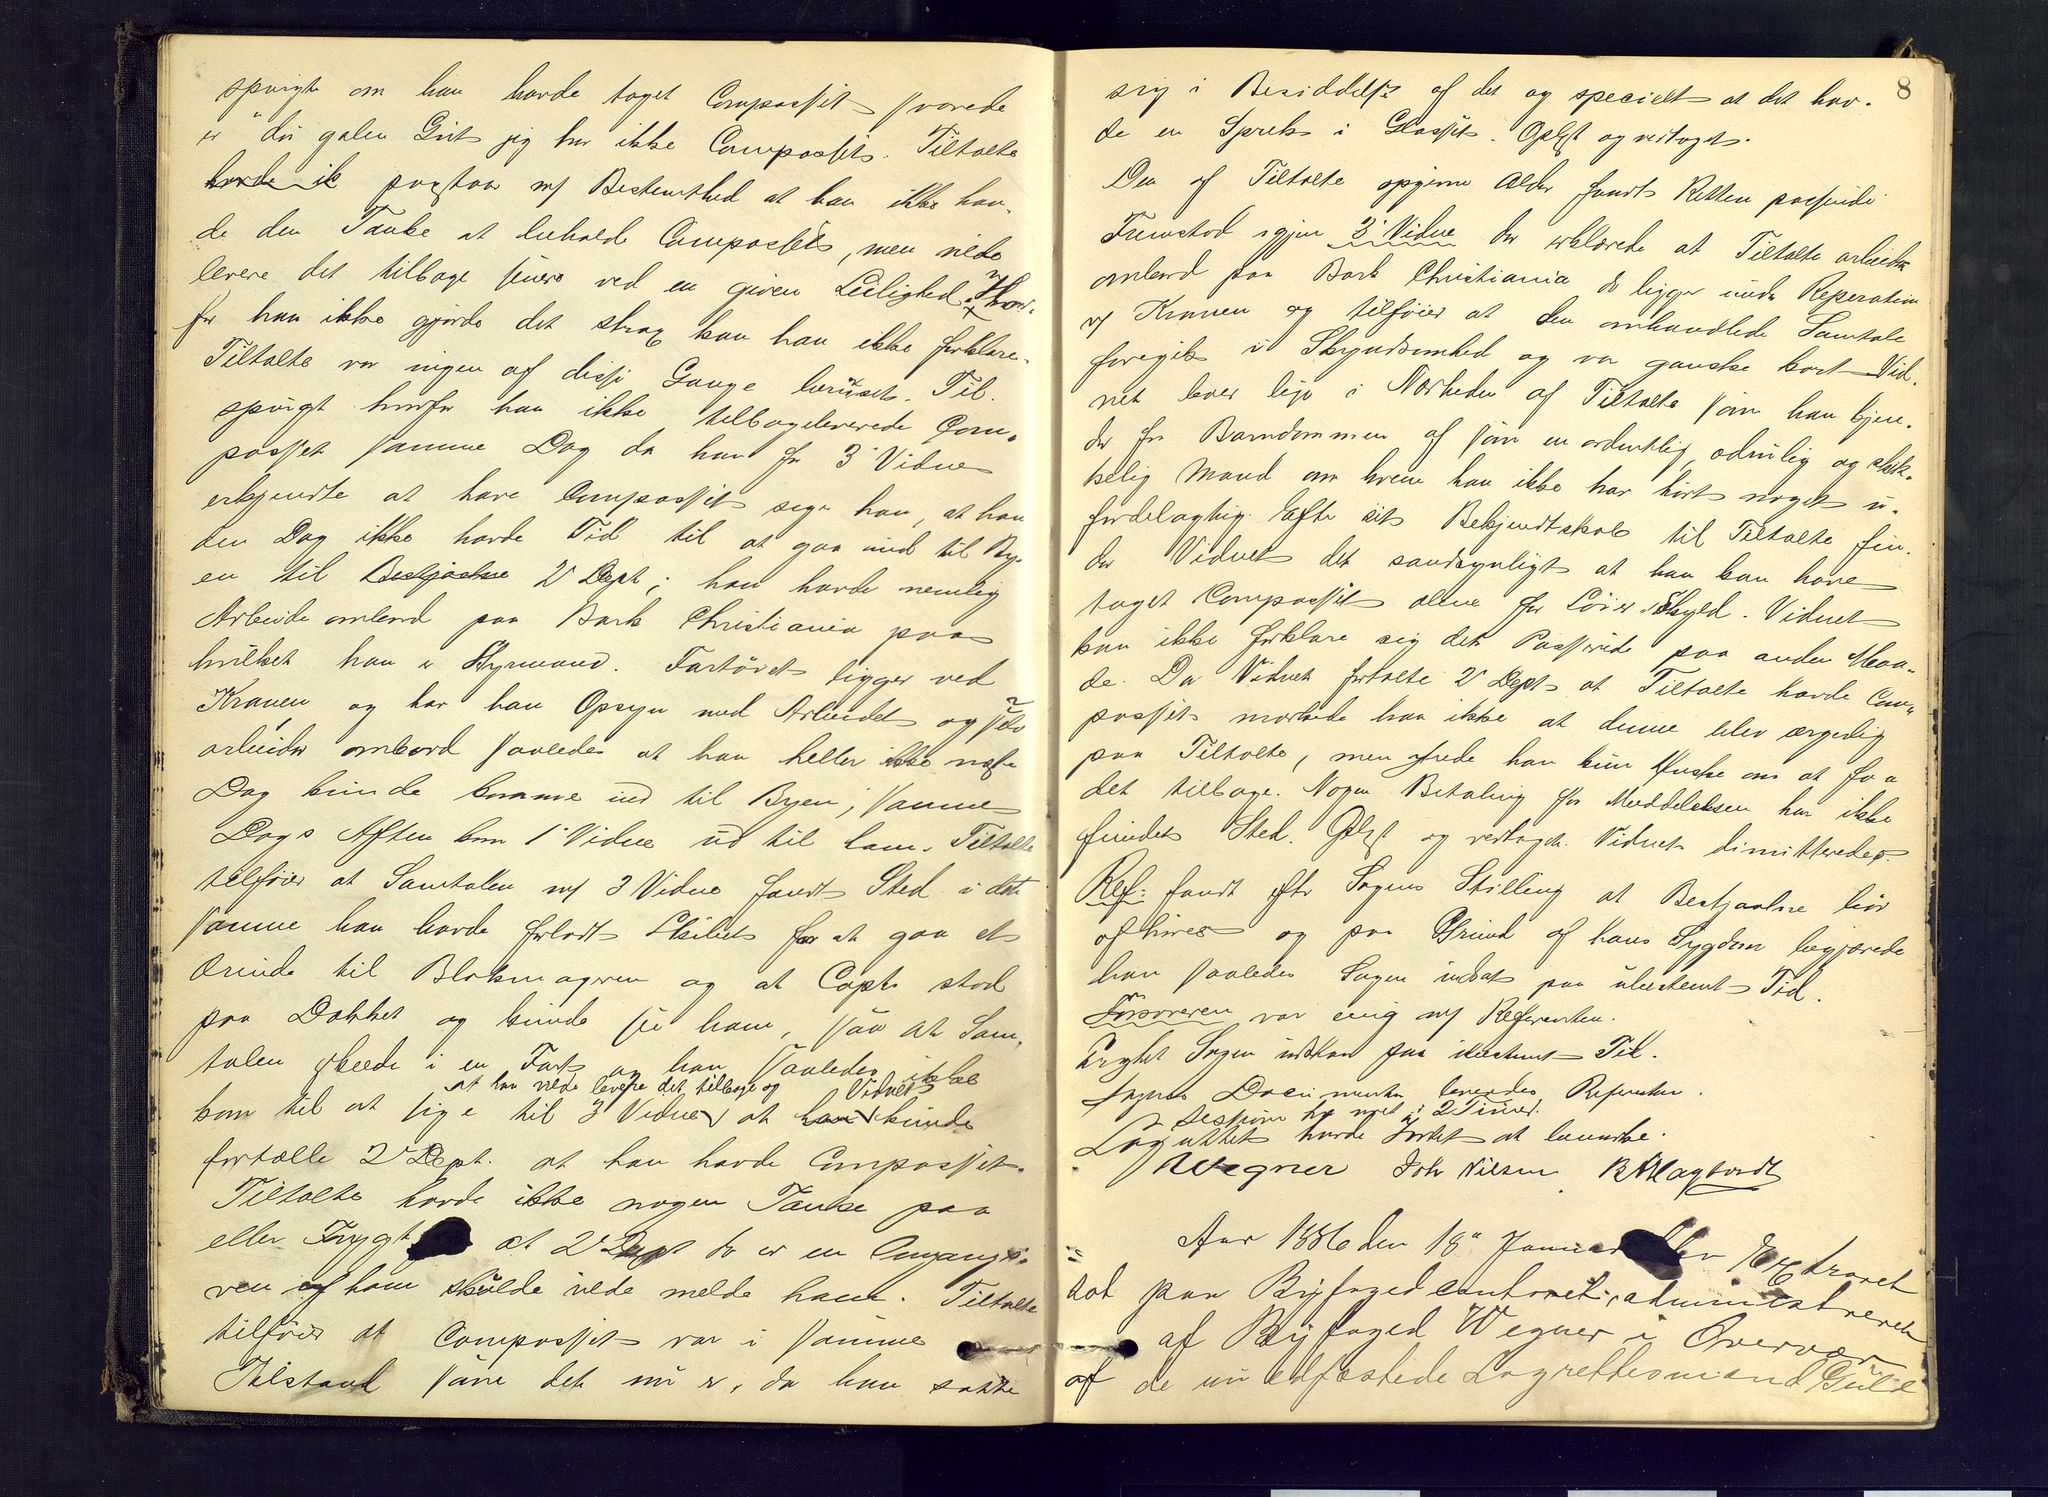 spurgte om han havde taget Compasset svarede
er "du galen Gut jeg har ikke Compasset. Tiltalte
havde ik paastaar m/ Bestemthed at han ikke hav-
de den Tanke at beholde Compasset, men vilde
levere det tilbage senere ved en given Leilighed. Hvor-
for han ikke gjorde det strax kan han ikke forklare.
Tiltalte var ingen af disse Gange beruset. Til-
spurgt hvorfor han ikke tilbageleverede Com-
passet samme Dag da han for 3' Vidne
erkjendte at have Compasset siger han, at han
den Dag ikke havde Tid til at gaa ind til By-
en til Bestjaalne 2' Dept; han havde nemlig
Arbeide ombord paa Bark Christiania paa
hvilket han er Styrmand. Fartöiet ligger ved
Kranen og har han Opsyn med Arbeidet og selv
arbeider ombord saaledes at han heller ikke næste
Dag kunde komme ind til Byen; samme
Dags Aften kom 1' Vidne ud til ham. Tiltalte
tilföier at Samtalen m/ 3 Vidne fandt Sted i det
samme han havde forladt Skibet for at gaa et
Ærinde til Blokmageren og at Capt. stod
paa Dækket og kunde se ham, saa at Sam-
talen skede i en Fart og han saaledes ikke
at han vilde levere det tilbage og Vidnet
kom til at sige til 3 Vidne at han kunde
fortælle 2' Dept. at han havde Compasset.
Tiltalte havde ikke nogen Tanke paa
eller Frygt at 2' Dept der er en Omgangs-
ven af ham skulde ville melde ham. Tiltalte
tilföier at Compasset var i samme
Tilstand som det nu er, da han satte
8
sig i Besiddelse af det og specielt at det hav-
de en Spræk i Glasset. Oplæst og vedtaget.
Den af Tiltalte opgivne Alder fandt Retten passende
Fremstod igjen 3' Vidne der erklærede at Tiltalte arbeider
ombord paa Bark Christiania der ligger under Reperation
v/ Kranen og tilföier at den omhandlede Samtale
foregik i Skyndsomhed og var ganske kort Vid-
net bever lige i Nærheden af Tiltalte som han kjen-
der fra Barndommen af som en ordentlig, ædruelig og skik-
kelig Mand om hvem han ikke har hört noget u-
fordelagtig. Efter sit Bekjendtskab til Tiltalte fin-
der Vidnet det sandsynligt at han kan have
taget Compasset alene for Löier Skyld. Vidnet
kan ikke forklare sig det Passerede paa anden Maa-
de. Da Vidnet fortalte 2' Dept at Tiltalte havde Com-
passet mærkede han ikke at denne blev ærgerlig
paa Tiltalte, men ytrede han kun Ønske om at faa
det tilbage. Nogen Betaling for Meddelelsen har ikke
fundet Sted. Oplæst og vedtaget. Vidnet dimitteredes.
Ref: fandt efter Sagens Stilling at Bestjaalne bör
afhöres og paa Grund af hans Sygdom begjærede
han saaledes Sagen udsat paa ubestemt Tid.
Forsvareren var enig m/ Referenten.
Sagen udsat paa ubestemt Tid.
Sagens Documenter leveredes Referenten.
Sessionen har varet i 2 Timer.
Lagrettet havde Intet at bemærke.
Wegner Joh Nilsen
Aar 1886 den 18' Januar blev Extraret
sat paa Byfogedcontoret, administreret
af Byfoged Wegner i Overvær
af de nu edfæstede Lagrettesmænd